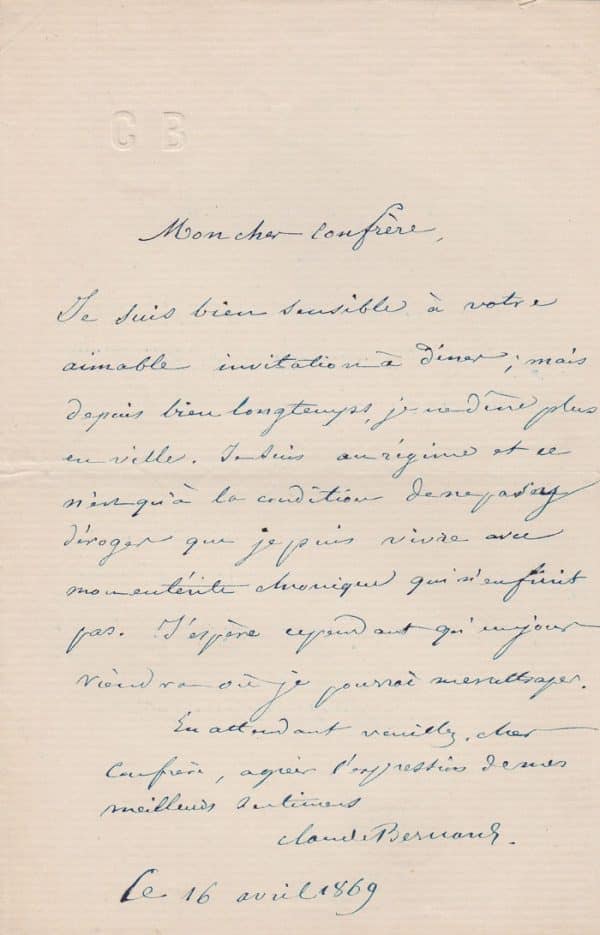 C B
Mon cher confrère,
Je suis bien sensible à votre
aimable invitation à dîner; mais
depuis bien longtemps, je ne dîne plus
en ville. Je suis au régime et ce
n'est qu'à la condition de ne pas y
déroger que je puis vivre avec
mon entérite chronique qui n'en finit
pas. J'espère cependant qu'un jour
viendra où je pourrai
En attendant veuillez, cher
confrère, agréer l'expression de mes
meilleurs sentimens
Claude Bernard.
Le 16 avril 1869